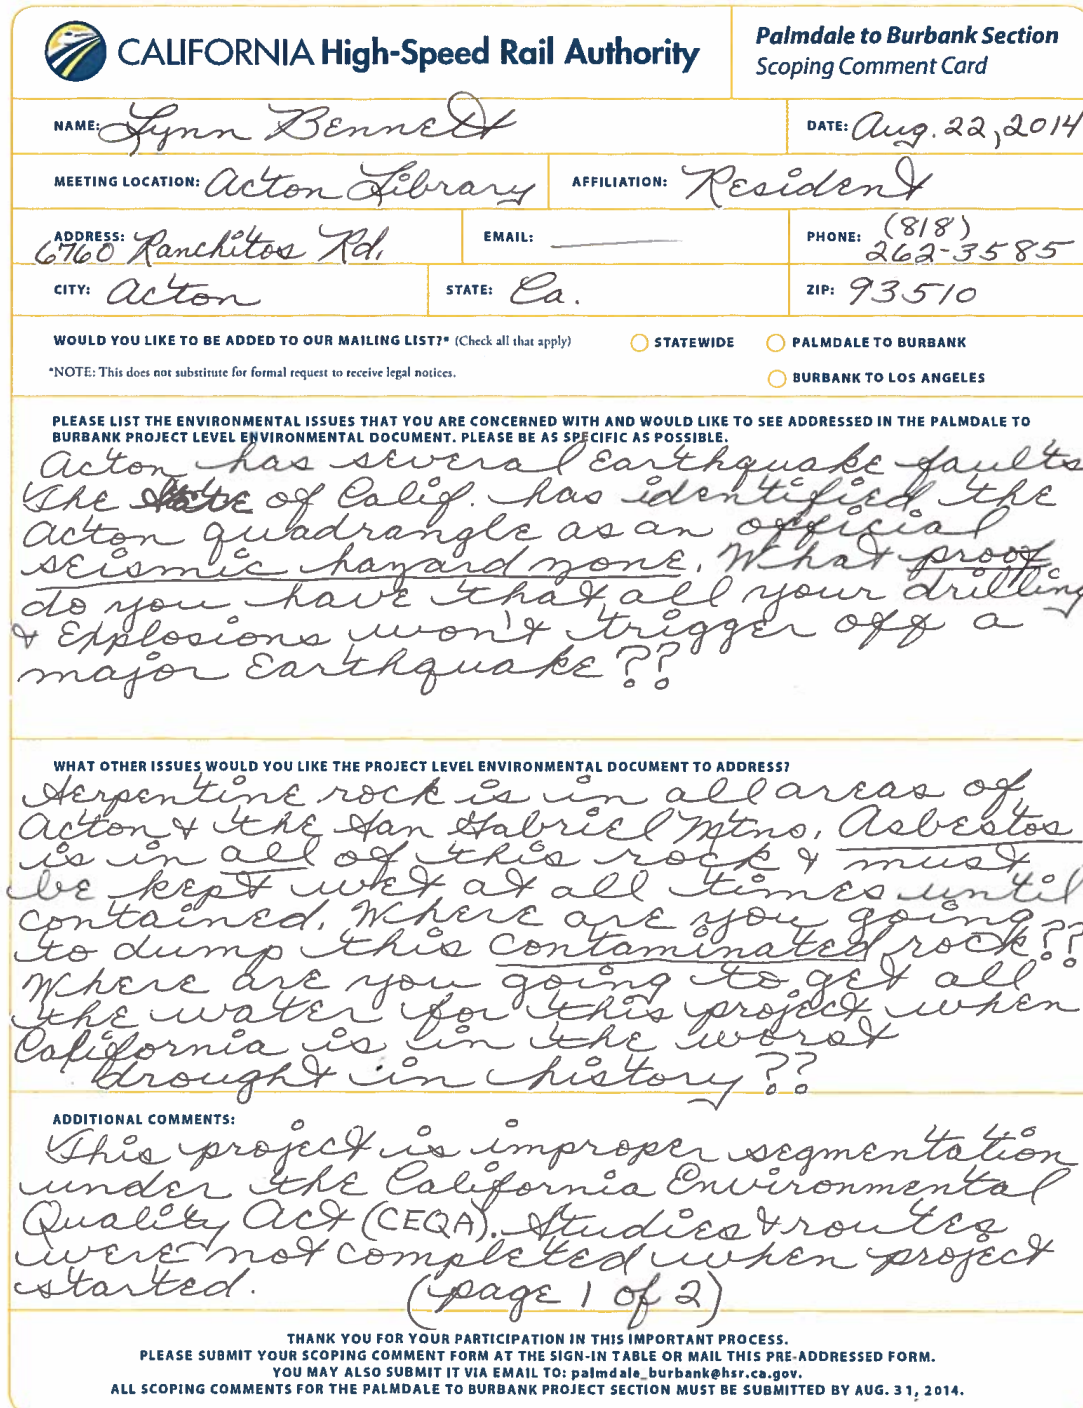 CALIFORNIA High-Speed Rail Authority
Palmdale to Burbank Section
Scoping Comment Card
NAME: Lynn Bennett
DATE: Aug. 22, 2014
MEETING LOCATION: Acton Library
AFFILIATION: Resident
ADDRESS: 6760 Ranchitos Rd.
EMAIL:
PHONE: (818) 262-3585
CITY: Acton
STATE: Ca.
ZIP: 93510
WOULD YOU LIKE TO BE ADDED TO OUR MAILING LIST?* (Check all that apply)
STATEWIDE
PALMDALE TO BURBANK
*NOTE: This does not substitute for formal request to receive legal notices.
BURBANK TO LOS ANGELES
PLEASE LIST THE ENVIRONMENTAL ISSUES THAT YOU ARE CONCERNED WITH AND WOULD LIKE TO SEE ADDRESSED IN THE PALMDALE TO
BURBANK PROJECT LEVEL ENVIRONMENTAL DOCUMENT. PLEASE BE AS SPECIFIC AS POSSIBLE.
Acton has several Earthquake faults
The State of Calif. has identified the
Acton quadrangle as an official
seismic hazard zone. What proof
do you have that all your drilling
& Explosions won't trigger off a
major Earthquake??
WHAT OTHER ISSUES WOULD YOU LIKE THE PROJECT LEVEL ENVIRONMENTAL DOCUMENT TO ADDRESS?
Serpentine rock is in all areas of
Acton & the San Gabriel Mtns. Asbestos
is in all of this rock & must
be kept wet at all times until
contained. Where are you going
to dump this contaminated rock??
Where are you going to get all
the water for this project when
California is in the worst
drought in history??
ADDITIONAL COMMENTS:
This project is improper segmentation
under the California Environmental
Quality Act (CEQA). Studies & routes
were not completed when project
started. (page 1 of 2)
THANK YOU FOR YOUR PARTICIPATION IN THIS IMPORTANT PROCESS.
PLEASE SUBMIT YOUR SCOPING COMMENT FORM AT THE SIGN-IN TABLE OR MAIL THIS PRE-ADDRESSED FORM.
YOU MAY ALSO SUBMIT IT VIA EMAIL TO: palmdale_burbank@hsr.ca.gov.
ALL SCOPING COMMENTS FOR THE PALMDALE TO BURBANK PROJECT SECTION MUST BE SUBMITTED BY AUG. 31, 2014.